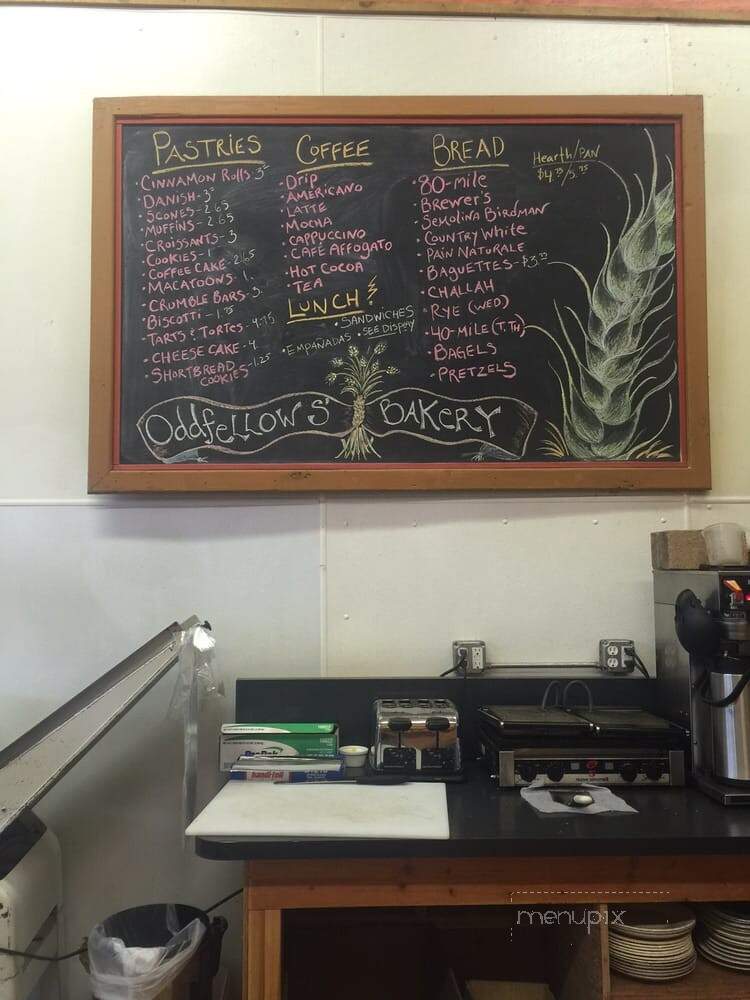 PASTRIES
• CINNAMON ROLLS - 3
• DANISH - 3
• SCONES - 2.65
• MUFFINS - 2.65
• CROISSANTS - 3
• COOKIES - 1
• COFFEE CAKE - 2.65
• MACATOONS - 1.
• CRUMBLE BARS - 3.
• BISCOTTI - 1.75
• TARTS & TORTES - 4.75
• CHEESE CAKE - 4
• SHORTBREAD COOKIES - 1.25
COFFEE
• DRIP
• AMERICANO
• LATTE
• MOCHA
• CAPPUCCINO
• CAFÉ AFFOGATO
• HOT COCOA
• TEA
LUNCH!
• SANDWICHES
• EMPAÑADAS • SEE DISPLAY
BREAD
• 80-MILE
• BREWERS
• SEMOLINA BIRDMAN
• COUNTRY WHITE
• PAIN NATURALE
• BAGUETTES - $3.
• CHALLAH
• RYE (WED)
• 40-MILE (T.TH)
• BAGELS
• PRETZELS
Hearth/PAN
$4.75/5.75
OddfeLLOWS' BAKERY
handi-foil
menupix